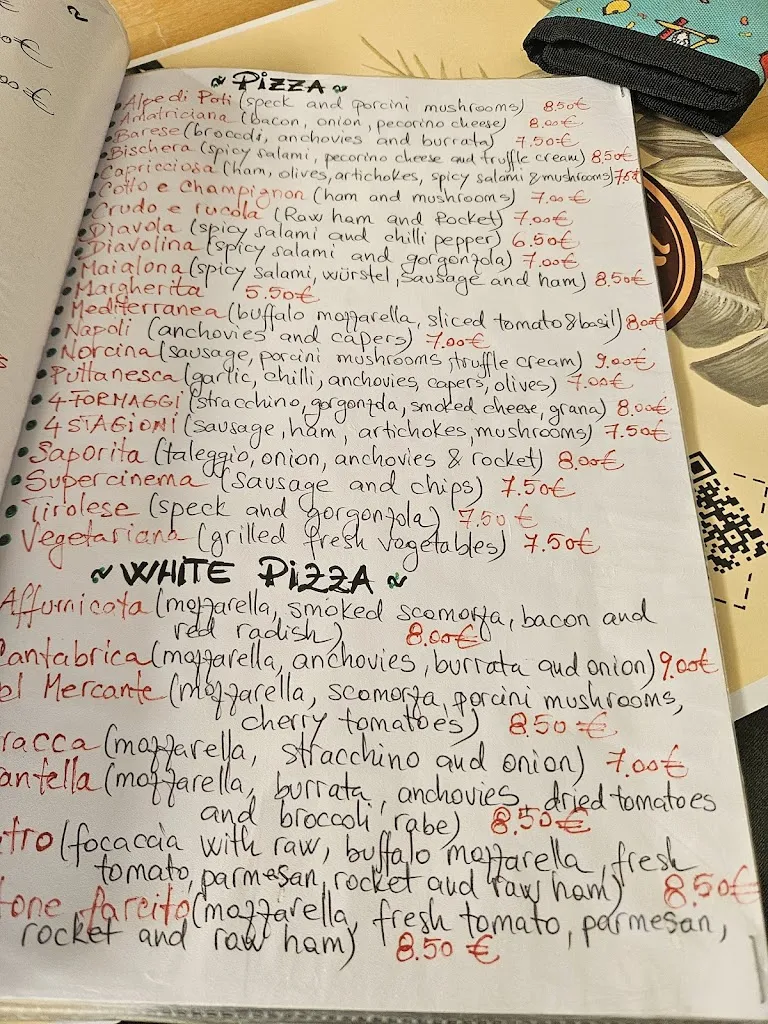 ~ PIZZA ~
• Alpe di Poti (speck and porcini mushrooms) 8.50€
• Amatriciana (bacon, onion, pecorino cheese) 8.00€
• Barese (broccoli, anchovies and burrata) 7.50€
• Bischera (spicy salami, pecorino cheese and truffle cream) 8.50€
• Capricciosa (ham, olives, artichokes, spicy salami & mushrooms) 7.50€
• Cotto e Champignon (ham and mushrooms) 7.00€
• Crudo e rucola (Raw ham and Rocket) 7.00€
• Diavola (spicy salami and chilli pepper) 6.50€
• Diavolina (spicy salami and gorgonzola) 7.00€
• Maialona (spicy salami, würstel, sausage and ham) 8.50€
• Margherita 5.50€
• Mediterranea (buffalo mozzarella, sliced tomato & basil) 8.00€
• Napoli (anchovies and capers) 7.00€
• Norcina (sausage, porcini mushrooms, truffle cream) 9.00€
• Puttanesca (garlic, chilli, anchovies, capers, olives) 7.00€
• 4 FORMAGGI (stracchino, gorgonzola, smoked cheese, grana) 8.00€
• 4 STAGIONI (sausage, ham, artichokes, mushrooms) 7.50€
• Saporita (taleggio, onion, anchovies & rocket) 8.00€
• Supercinema (sausage and chips) 7.50€
• Tirolese (speck and gorgonzola) 7.50€
• Vegetariana (grilled fresh vegetables) 7.50€
~ WHITE PIZZA ~
Affumicata (mozzarella, smoked scamorza, bacon and
red radish) 8.00€
Cantabrica (mozzarella, anchovies, burrata and onion) 9.00€
el Mercante (mozzarella, scamorza, porcini mushrooms,
cherry tomatoes) 8.50€
racca (mozzarella, stracchino and onion) 7.00€
antella (mozzarella, burrata, anchovies, dried tomatoes
and broccoli rabe) 8.50€
tro (focaccia with raw, buffalo mozzarella, fresh
tomato, parmesan, rocket and raw ham) 8.50€
tone farcito (mozzarella, fresh tomato, parmesan,
rocket and raw ham) 8.50€